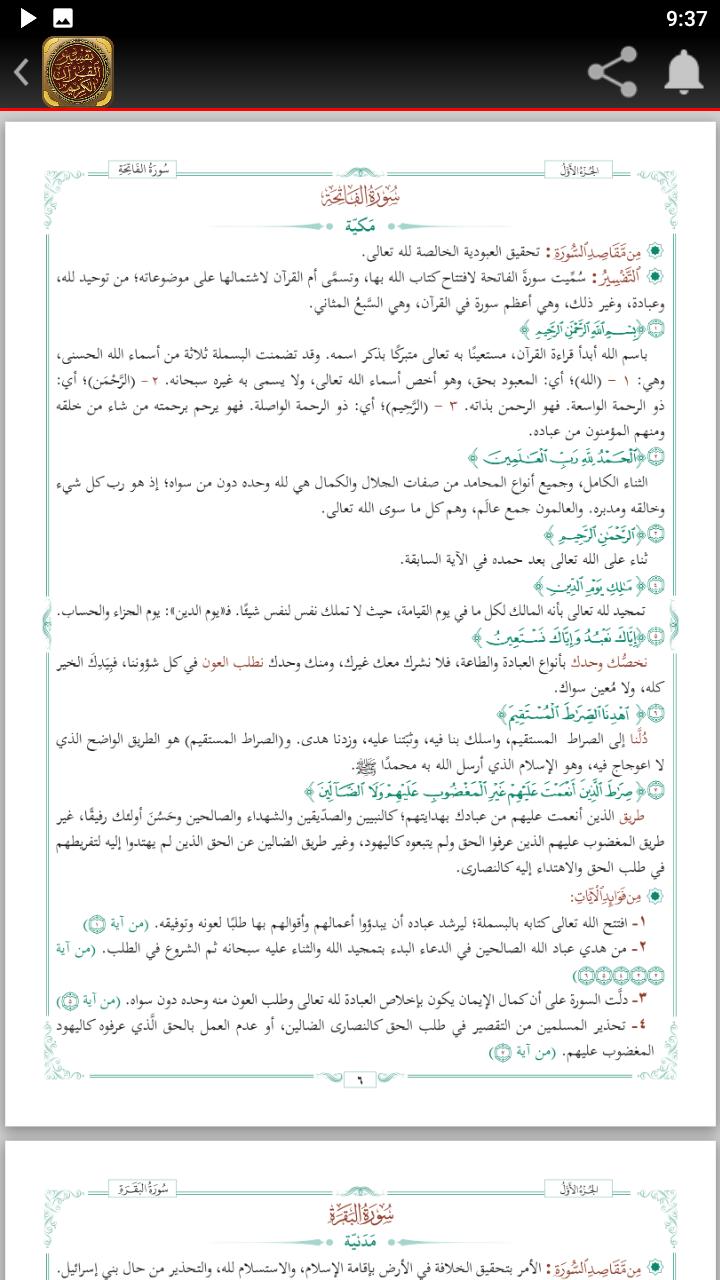 9:37
تفسير
القرآن
الكريم
الجُزءُ الأَوَّلُ
سُورَةُ الفَاتِحَةِ
سُورَةُ الفَاتِحَةِ
مَكيّة
مِن مَّقَاصِدِ السُّورَةِ: تحقيق العبودية الخالصة لله تعالى.
التَّفْسِيرُ: سُمِّيت سورةَ الفاتحة لافتتاح كتاب الله بها، وتسمَّى أم القرآن لاشتمالها على موضوعاته؛ من توحيد لله،
وعبادة، وغير ذلك، وهي أعظم سورة في القرآن، وهي السَّبعُ المثاني.
١ ﴿بِسْمِ اللَّهِ الرَّحْمَٰنِ الرَّحِيمِ﴾
باسم الله أبدأ قراءة القرآن، مستعينًا به تعالى متبركًا بذكر اسمه. وقد تضمنت البسملة ثلاثة من أسماء الله الحسنى،
وهي: ١ - (الله)؛ أي: المعبود بحق، وهو أخص أسماء الله تعالى، ولا يسمى به غيره سبحانه. ٢ - (الرَّحْمَن)؛ أي:
ذو الرحمة الواسعة. فهو الرحمن بذاته. ٣ - (الرَّحِيم)؛ أي: ذو الرحمة الواصلة. فهو يرحم برحمته من شاء من خلقه
ومنهم المؤمنون من عباده.
٢ ﴿الْحَمْدُ لِلَّهِ رَبِّ الْعَٰلَمِينَ﴾
الثناء الكامل، وجميع أنواع المحامد من صفات الجلال والكمال هي لله وحده دون من سواه؛ إذ هو رب كل شيء
وخالقه ومدبره. والعالمون جمع عالَم، وهم كل ما سوى الله تعالى.
٣ ﴿الرَّحْمَٰنِ الرَّحِيمِ﴾
ثناء على الله تعالى بعد حمده في الآية السابقة.
٤ ﴿مَٰلِكِ يَوْمِ الدِّينِ﴾
تمجيد لله تعالى بأنه المالك لكل ما في يوم القيامة، حيث لا تملك نفس لنفس شيئًا. فـ«يوم الدين»: يوم الجزاء والحساب.
٥ ﴿إِيَّاكَ نَعْبُدُ وَإِيَّاكَ نَسْتَعِينُ﴾
نخصُّك وحدك بأنواع العبادة والطاعة، فلا نشرك معك غيرك، ومنك وحدك نطلب العون في كل شؤوننا، فبِيَدِكَ الخير
كله، ولا مُعين سواك.
٦ ﴿اهْدِنَا الصِّرَٰطَ الْمُسْتَقِيمَ﴾
دُلَّنا إلى الصراط المستقيم، واسلك بنا فيه، وثبِّتنا عليه، وزدنا هدى. و(الصراط المستقيم) هو الطريق الواضح الذي
لا اعوجاج فيه، وهو الإسلام الذي أرسل الله به محمدًا ﷺ.
٧ ﴿صِرَٰطَ الَّذِينَ أَنْعَمْتَ عَلَيْهِمْ غَيْرِ الْمَغْضُوبِ عَلَيْهِمْ وَلَا الضَّآلِّينَ﴾
طريق الذين أنعمت عليهم من عبادك بهدايتهم؛ كالنبيين والصدّيقين والشهداء والصالحين وحَسُنَ أولئك رفيقًا، غير
طريق المغضوب عليهم الذين عرفوا الحق ولم يتبعوه كاليهود، وغير طريق الضالين عن الحق الذين لم يهتدوا إليه لتفريطهم
في طلب الحق والاهتداء إليه كالنصارى.
مِن فَوَائِدِ الْآيَاتِ:
١- افتتح الله تعالى كتابه بالبسملة؛ ليرشد عباده أن يبدؤوا أعمالهم وأقوالهم بها طلبًا لعونه وتوفيقه. (من آية ١)
٢- من هدي عباد الله الصالحين في الدعاء البدء بتمجيد الله والثناء عليه سبحانه ثم الشروع في الطلب. (من آية
٢ ٣ ٤ ٥ ٦)
٣- دلَّت السورة على أن كمال الإيمان يكون بإخلاص العبادة لله تعالى وطلب العون منه وحده دون سواه. (من آية ٥)
٤- تحذير المسلمين من التقصير في طلب الحق كالنصارى الضالين، أو عدم العمل بالحق الَّذي عرفوه كاليهود
المغضوب عليهم. (من آية ٧)
٦
الجُزءُ الأَوَّلُ
سُورَةُ البَقَرَةِ
سُورَةُ البَقَرَةِ
مَدَنيّة
مِن مَّقَاصِدِ السُّورَةِ: الأمر بتحقيق الخلافة في الأرض بإقامة الإسلام، والاستسلام لله، والتحذير من حال بني إسرائيل.